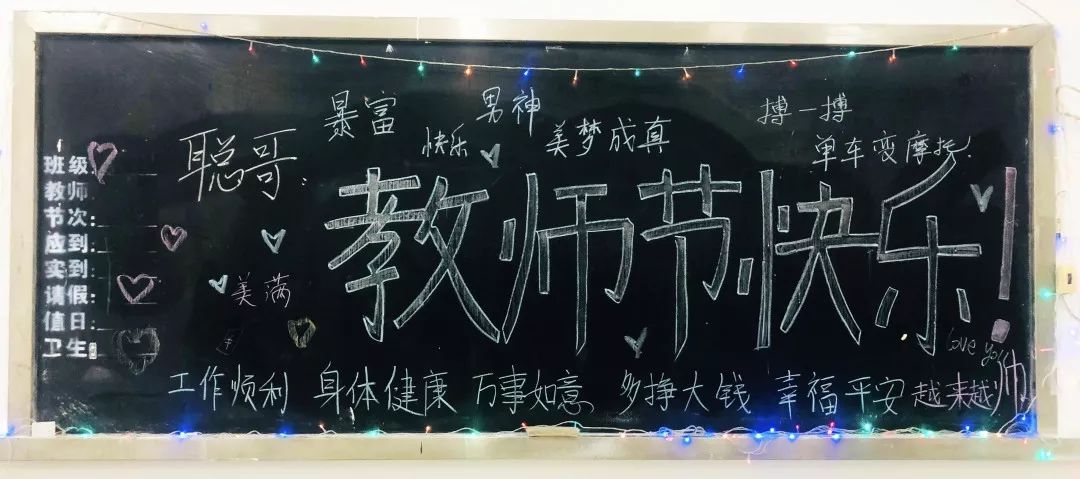 暴富
男神
搏一搏
聪哥：
快乐
美梦成真
单车变摩托！
班级：
教师：
节次：
应到：
实到：
请假：
值日：
卫生：
教师节快乐！
美满
love you
工作顺利 身体健康 万事如意 多挣大钱 幸福平安 越来越帅